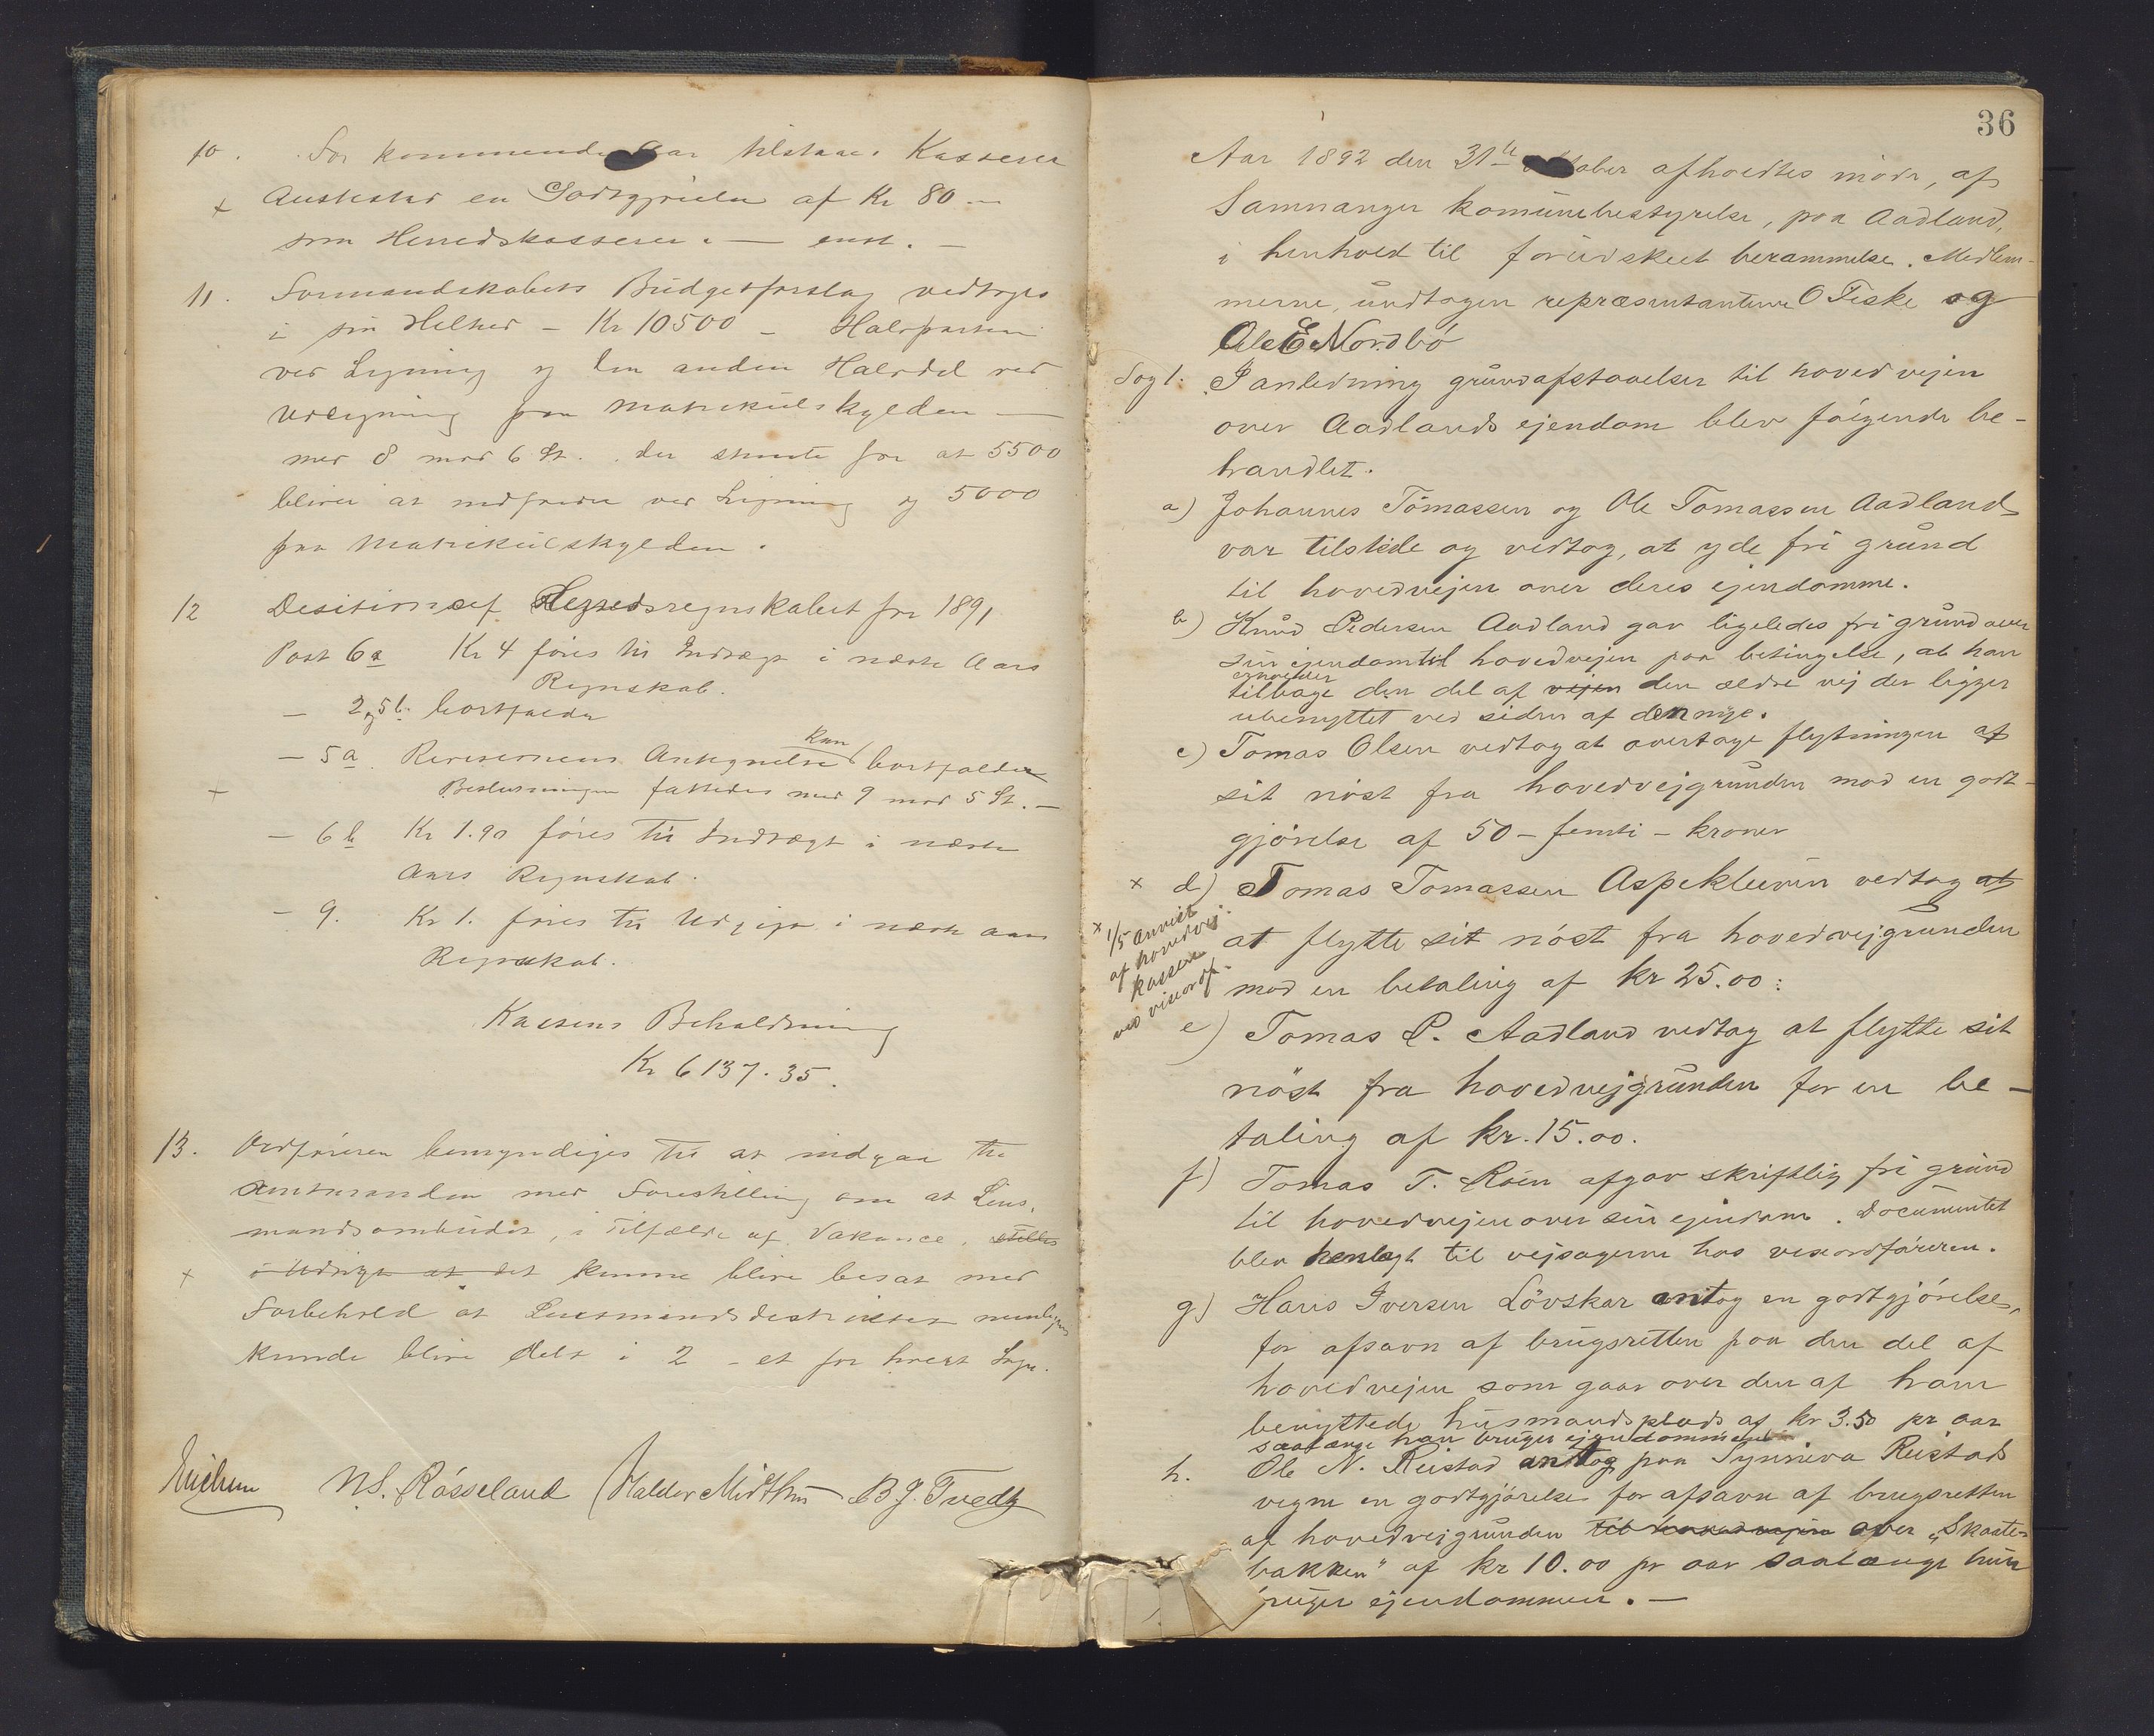 10. For kommende Aar tilstaaes Kasserer
+ Austestad en Godtgjørelse af Kr 80 —
som Herredskasserer. — enst. —
11. Formandskabets Budgetforslag vedtages
i sin Helhed – Kr 10500 – Halvparten
ved Ligning og den anden Halvdel ved
Udligning paa Matrikulskylden —
med 8 mod 6 St. der stemte for at 5500
bliver at udfærdie ved Ligning og 5000
paa Matrikulskylden.
12 Desition af Herredsregnskabet for 1891
Post 6a Kr 4 føres til Indtægt i næste Aars
Regnskab.
— 2 og 5b bortfalder
— 5a Revisornens Antegnelse kan bortfalder
+ Beslutningen fattedes med 9 mod 5 St. —
— 6b Kr 1.90 føres til Indtægt i næste
Aars Regnskab.
— 9. Kr 1. føres til Udgigt i næste Aars
Regnskab.
Kassens Beholdning
Kr 6137.35.
13. Ordføreren bemyndiges til at indgaa til
Amtmanden med Forestilling om at Lens-
mandsombudet, i Tilfælde af Vakance, stilles
+ i Udsigt at det kunne blive besat med
Forbehold at Lensmandsdistriktet
kunde blive delt i 2 – et for hvert Sogn.
NS. Røsseland Halder Midthun B J. Tvedt
36
Aar 1892 den 31te oktober afholdtes møde, af
Samnanger komunebestyrelse, paa Aadland,
i henhold til forudskeet berammelse. Medlem-
merne, undtagen repræsentanterne O Teske og
Ole E Nordbø
Sag 1. I anledning grundafstaaelser til hovedvejen
over Aadlands ejendom blev følgende be-
handlet.
a) Johannes Tomassen og Ole Tomassen Aadland
var tilstede og vedtog, at yde fri grund
til hovedvejen over deres ejendomme.
b) Knud Pedersen Aadland gav ligeledes fri grund over
sin ejendom til hovedvejen paa betingelse, at han
erholder
tilbage den del af vejen den ældre vej der ligger
ubenyttet ved siden af den nye.
c) Tomas Olsen vedtog at overtage flytningen af
sit nøst fra hovedvejgrunden mod en godt-
gjørelse af 50 – femti – kroner
x d) Tomas Tomassen Aspekleiven vedtog at
at flytte sit nøst fra hovedvejgrunden
mod en betaling af kr 25.00:
x 1/5 anvist
af hovedvej-
kassen
ved viseordf.
e) Tomas P. Aadland vedtog at flytte sit
nøst fra hovedvejgrunden for en be-
taling af kr. 15.00.
f) Tomas T. Røen afgav skriftlig fri grund
til hovedvejen over sin ejendom. Documentet
blev henlagt til vejsagerne hos viseordføreren.
g) Hans Iversen Løvskar antog en godtgjørelse,
for afsavn af brugsretten paa den del af
hovedvejen som gaar over den af ham
benyttede husmandsplads af kr 3.50 pr aar
saalænge han bruger ejendommen
h. Ole N. Reistad antog paa Synneva Reistads
vegne en godtgjørelse for afsavn af brugsretten
af hovedvejgrunden til hovedvejen over „Skaate-
bakken" af kr 10.00 pr aar saalænge hun
bruger ejendommen. —